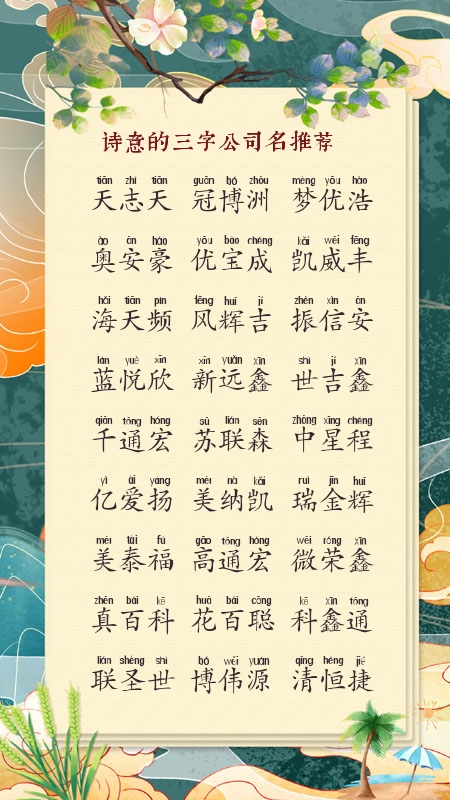 诗意的三字公司名推荐
tiān zhì tiān guān bó zhōu mèng yōu hào
天志天 冠博洲 梦优浩
ào ān háo yōu bǎo chéng kǎi wēi fēng
奥安豪 优宝成 凯威丰
hǎi tiān pín fēng huī jí zhèn xìn ān
海天频 风辉吉 振信安
lán yuè xīn xīn yuǎn xīn shì jí xīn
蓝悦欣 新远鑫 世吉鑫
qiān tōng hóng sū lián sēn zhōng xīng chéng
千通宏 苏联森 中星程
yì ài yáng měi nà kǎi ruì jīn huī
亿爱扬 美纳凯 瑞金辉
měi tài fú gāo tōng hóng wēi róng xīn
美泰福 高通宏 微荣鑫
zhēn bǎi kē huā bǎi cōng kē xīn tōng
真百科 花百聪 科鑫通
lián shèng shì bó wěi yuán qīng héng jié
联圣世 博伟源 清恒捷